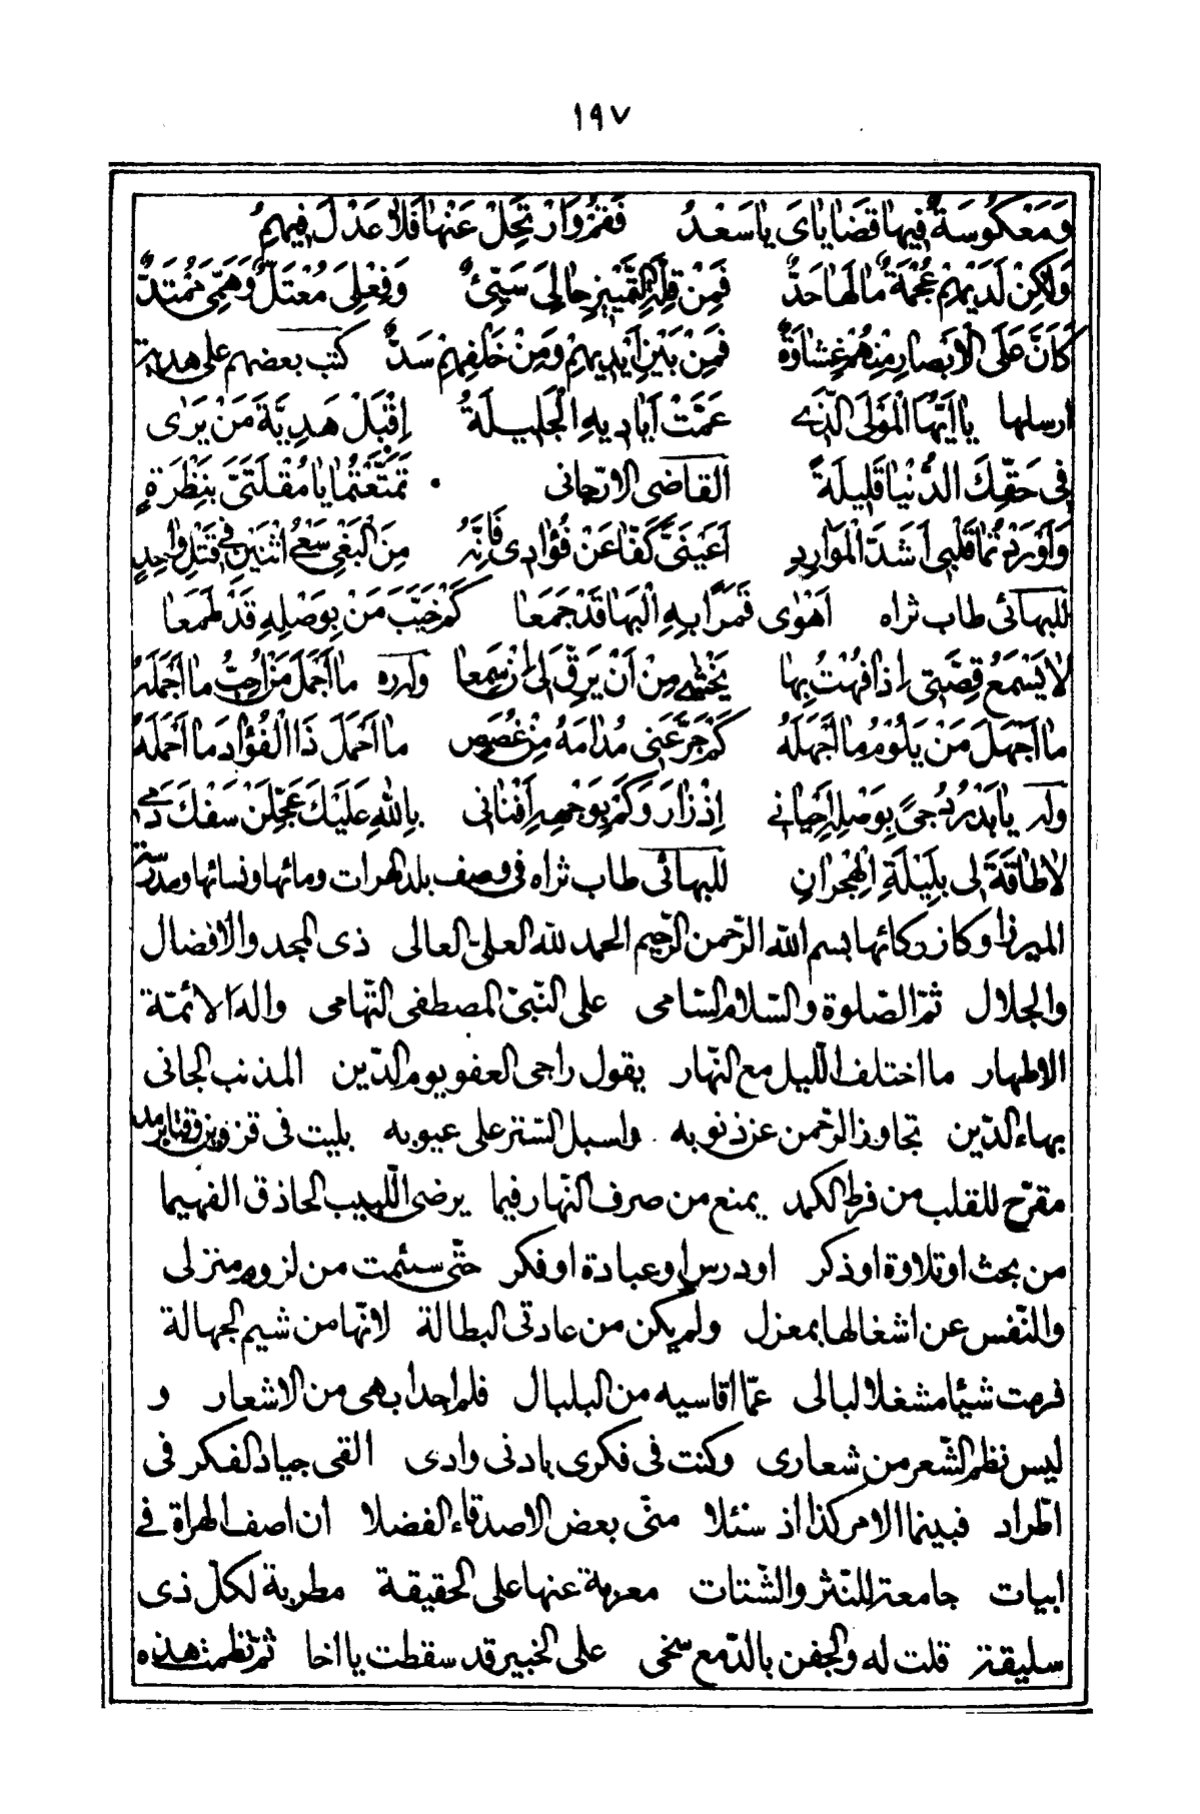 ١٩٧
وَمَعْكُوسَةٌ فِيهَا قَضَايَايَ يَا سَعْدُ فَقُمْ وَارْتَحِلْ عَنْهَا فَلَا عَدْلَ فِيهِمُ
وَلَكِنْ لَدَيْهِمْ عُجْمَةٌ مَا لَهَا حَدٌّ فَمِنْ قِلَّةِ التَّمْيِيزِ حَالِيَ سَيِّئٌ وَفِعْلِيَ مُعْتَلٌّ وَهَمِّيَ مُمْتَدٌّ
كَأَنَّ عَلَى الْأَبْصَارِ مِنْهُمْ غِشَاوَةٌ فَمِنْ بَيْنِ أَيْدِيهِمْ وَمِنْ خَلْفِهِمْ سَدٌّ كتب بعضهم على هدية
ارسلها يَا أَيُّهَا الْمَوْلَى الَّذِي عَمَّتْ أَيَادِيهِ الْجَلِيلَةُ اِقْبَلْ هَدِيَّةَ مَنْ يَرَى
فِي حَقِّكَ الدُّنْيَا قَلِيلَةً القاضى الارّجانى تَمَتَّعْتُمَا يَا مُقْلَتَيَّ بِنَظْرَةٍ
وَأَوْرَدْتُمَا قَلْبِي أَشَدَّ الْمَوَارِدِ أَعَيْنَيَّ كُفَّا عَنْ فُؤَادِي فَإِنَّهُ مِنَ الْبَغْيِ سَعْيُ اثْنَيْنِ فِي قَتْلِ وَاحِدٍ
للبهائى طاب ثراه أَهْوَى قَمَرًا بِهِ الْبَهَا قَدْ جَمَعَا كَمْ خَيَّبَ مَنْ بِوَصْلِهِ قَدْ طَمَعَا
لَا يَسْمَعُ قِصَّتِي إِذَا فُهْتُ بِهَا يَخْشَى مِنْ أَنْ يَرِقَّ لِي إِنْ سَمِعَا وله ره مَا أَجْمَلَ مَنْ أُحِبُّ مَا أَجْمَلَهُ
مَا أَجْهَلَ مَنْ يَلُومُ مَا أَجْهَلَهُ كَمْ جَرَّعَنِي مُدَامَهُ مِنْ غُصَصٍ مَا أَحْمَلَ ذَا الْفُؤَادَ مَا أَحْمَلَهُ
وله يَا بَدْرَ دُجًى بِوَصْلِهِ أَحْيَانِي إِذْ زَارَ وَكَمْ بِوَجْهِهِ أَفْنَانِي بِاللهِ عَلَيْكَ عَجِّلَنْ سَفْكَ دَمِي
لَا طَاقَةَ لِي بِلَيْلَةِ الْهِجْرَانِ للبهائى طاب ثراه فى وصف بلد الهرات ومائها ونسائها ومدرسة
الميرزا وكازركائها بسم الله الرّحمن الرّحيم الحمد لله العلىّ العالى ذى المجد والافضال
والجلال ثمّ الصّلوة والسّلام السّامى على النّبىّ المصطفى التّهامى واله الائمّة
الاطهار ما اختلف اللّيل مع النّهار يقول راجى العفو يوم الدّين المذنب الجانى
بهاء الدّين تجاوز الرّحمن عن ذنوبه واسبل السّتر على عيوبه بليت فى قزوين وقتا برمد
مقرّح للقلب من فرط الكمد يمنع من صرف النّهار فيما يرضى اللّبيب الحاذق الفهيما
من بحث او تلاوة او ذكر او درس او عبادة او فكر حتّى سئمت من لزوم منزلى
والنّفس عن اشغالها بمعزل ولم يكن من عادتى البطالة لانّها من شيم الجهالة
فرمت شيئا مشغلا لبالى عمّا اقاسيه من البلبال فلم اجد ابهى من الاشعار و
ليس نظم الشّعر من شعارى وكنت فى فكرى بادنى وادى القى جياد الفكر فى
اطّراد فبينما الامر كذا اذ سئلا منّى بعض الاصدقاء الفضلا ان اصف الهراة فى
ابيات جامعة للنّثر والشّتات معربة عنها على الحقيقة مطربة لكلّ ذى
سليقة قلت له والجفن بالدّمع سخى على الخبير قد سقطت يا اخا ثمّ نظمت هذه